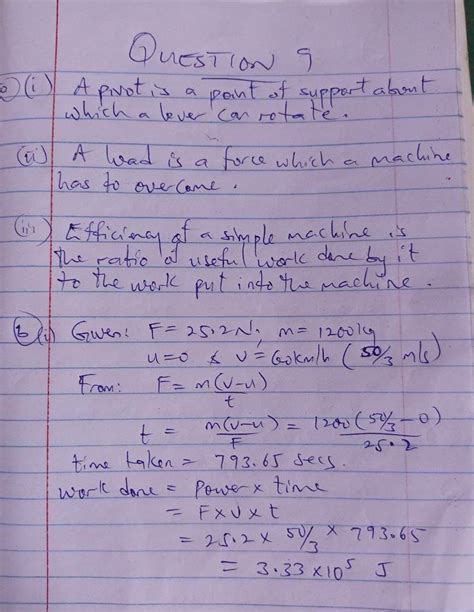 QUESTION 9
a (i) A pivot is a point of support about
which a lever can rotate.
(ii) A load is a force which a machine
has to overcome.
(iii) Efficiency of a simple machine is
the ratio of useful work done by it
to the work put into the machine.
b (i) Given: F = 25.2N, m = 1200kg
u=0 & v = 60km/h (50/3 m/s)
From: F = m(v-u)/t
t = m(v-u)/F = 1200(50/3-0)/25.2
time taken = 793.65 secs.
work done = power x time
= F x v x t
= 25.2 x 50/3 x 793.65
= 3.33 x 10⁵ J